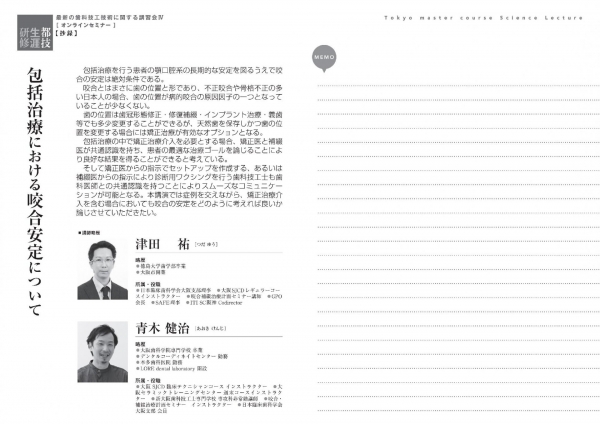 都技
生涯
研修
最新の歯科技工技術に関する講習会Ⅳ
[ オンラインセミナー ]
【抄録】
Tokyo master course Science Lecture
包括治療における咬合安定について
包括治療を行う患者の顎口腔系の長期的な安定を図るうえで咬
合の安定は絶対条件である。
咬合とはまさに歯の位置と形であり、不正咬合や骨格不正の多
い日本人の場合、歯の位置が病的咬合の原因因子の一つとなって
いることが少なくない。
歯の位置は歯冠形態修正・修復補綴・インプラント治療・義歯
等でも多少変更することができるが、天然歯を保存しかつ歯の位
置を変更する場合には矯正治療が有効なオプションとなる。
包括治療の中で矯正治療介入を必要とする場合、矯正医と補綴
医が共通認識を持ち、患者の最適な治療ゴールを論じることによ
り良好な結果を得ることができると考えている。
そして矯正医からの指示でセットアップを作成する、あるいは
補綴医からの指示により診断用ワクシングを行う歯科技工士も歯
科医師との共通認識を持つことによりスムーズなコミュニケー
ションが可能となる。本講演では症例を交えながら、矯正治療介
入を含む場合においても咬合の安定をどのように考えれば良いか
論じさせていただきたい。
■講師略歴
津田 祐 [つだ ゆう]
略歴
●徳島大学歯学部卒業
●大阪市開業
所属・役職
●日本臨床歯科学会大阪支部理事 ●大阪SJCDレギュラーコー
スインストラクター ●咬合補綴治療計画セミナー講師 ●GPO
会長 ●SAFE理事 ●ITI SC阪神 Codirector
青木 健治 [あおき けんじ]
略歴
●大阪歯科学院専門学校 卒業
●デンタルコーディネイトセンター 勤務
●本多歯科医院 勤務
●LORE dental laboratory 開設
所属・役職
●大阪 SJCD 臨床テクニシャンコース インストラクター ●大
阪セラミックトレーニングセンター 週末コースインストラク
ター ●新大阪歯科技工士専門学校 専攻科非常勤講師 ●咬合・
補綴治療計画セミナー インストラクター ●日本臨床歯科学会
大阪支部 会員
MEMO